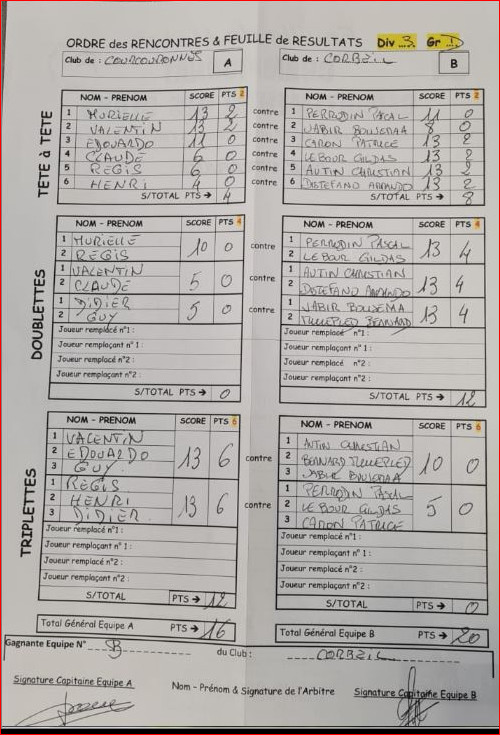 ORDRE des RENCONTRES & FEUILLE de RESULTATS Div 3 Gr D
Club de : COURCOURONNES A Club de : CORBEIL B
TÊTE à TÊTE
NOM - PRENOM SCORE PTS 2 NOM - PRENOM SCORE PTS 2
1 MURIELLE 13 2 contre 1 PERRODIN PASCAL 11 0
2 VALENTIN 13 2 contre 2 JABIR BOUSDAA 8 0
3 EDOUARDO 11 0 contre 3 CARON PATRICE 13 2
4 CLAUDE 6 0 contre 4 LEBOUR GILDAS 13 2
5 REGIS 6 0 contre 5 AUTIN CHRISTIAN 13 2
6 HENRI 4 0 contre 6 DISTEFANO ARMANDO 13 2
S/TOTAL PTS → 4 S/TOTAL PTS → 8
DOUBLETTES
NOM - PRENOM SCORE PTS 4 NOM - PRENOM SCORE PTS 4
1 MURIELLE 10 0 contre 1 PERRODIN PASCAL 13 4
2 REGIS 2 LEBOUR GILDAS
1 VALENTIN 5 0 contre 1 AUTIN CHRISTIAN 13 4
2 CLAUDE 2 DISTEFANO ARMANDO
1 DIDIER 5 0 contre 1 JABIR BOUDEMA 13 4
2 GUY 2 BERNARD
Joueur remplacé n°1 : Joueur remplacé n°1 :
Joueur remplaçant n° 1 : Joueur remplaçant n° 1 :
Joueur remplacé n°2 : Joueur remplacé n°2 :
Joueur remplaçant n°2 : Joueur remplaçant n°2 :
S/TOTAL PTS → 0 S/TOTAL PTS → 12
TRIPLETTES
NOM - PRENOM SCORE PTS 6 NOM - PRENOM SCORE PTS 6
1 VALENTIN 1 AUTIN CHRISTIAN
2 EDOUARDO 13 6 contre 2 BERNARD 10 0
3 GUY 3 JABIR BOUSDAA
1 REGIS 1 PERRODIN PASCAL
2 HENRI 13 6 contre 2 LEBOUR GILDAS 5 0
3 DIDIER 3 CARON PATRICE
Joueur remplacé n°1 : Joueur remplacé n°1 :
Joueur remplaçant n° 1 : Joueur remplaçant n° 1 :
Joueur remplacé n°2 : Joueur remplacé n°2 :
Joueur remplaçant n°2 : Joueur remplaçant n°2 :
S/TOTAL PTS → 12 S/TOTAL PTS → 0
Total Général Equipe A PTS → 16 Total Général Equipe B PTS → 20
Gagnante Equipe N° B du Club : CORBEIL
Signature Capitaine Equipe A Nom - Prénom & Signature de l'Arbitre Signature Capitaine Equipe B